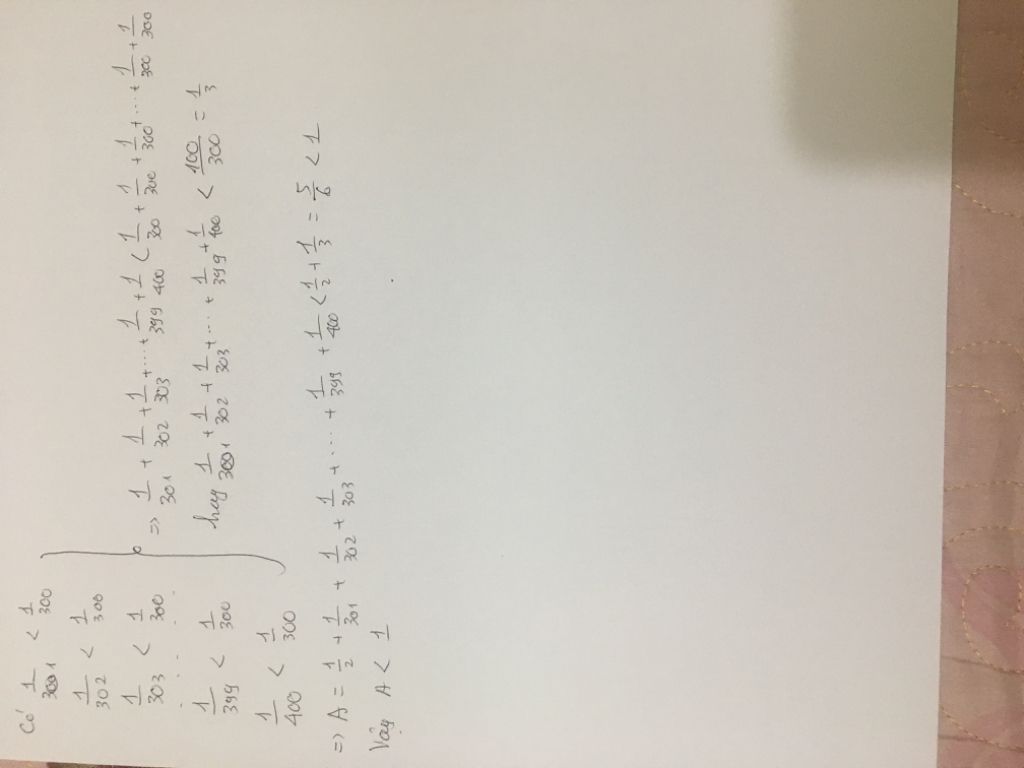 Có 1/301 < 1/300
1/302 < 1/300
1/303 < 1/300
. . .
1/399 < 1/300
1/400 < 1/300
=> 1/301 + 1/302 + 1/303 + ... + 1/399 + 1/400 < 1/300 + 1/300 + 1/300 + ... + 1/300 + 1/300
hay 1/301 + 1/302 + 1/303 + ... + 1/399 + 1/400 < 100/300 = 1/3
=> A = 1/2 + 1/301 + 1/302 + 1/303 + .... + 1/399 + 1/400 < 1/2 + 1/3 = 5/6 < 1
Vậy A < 1